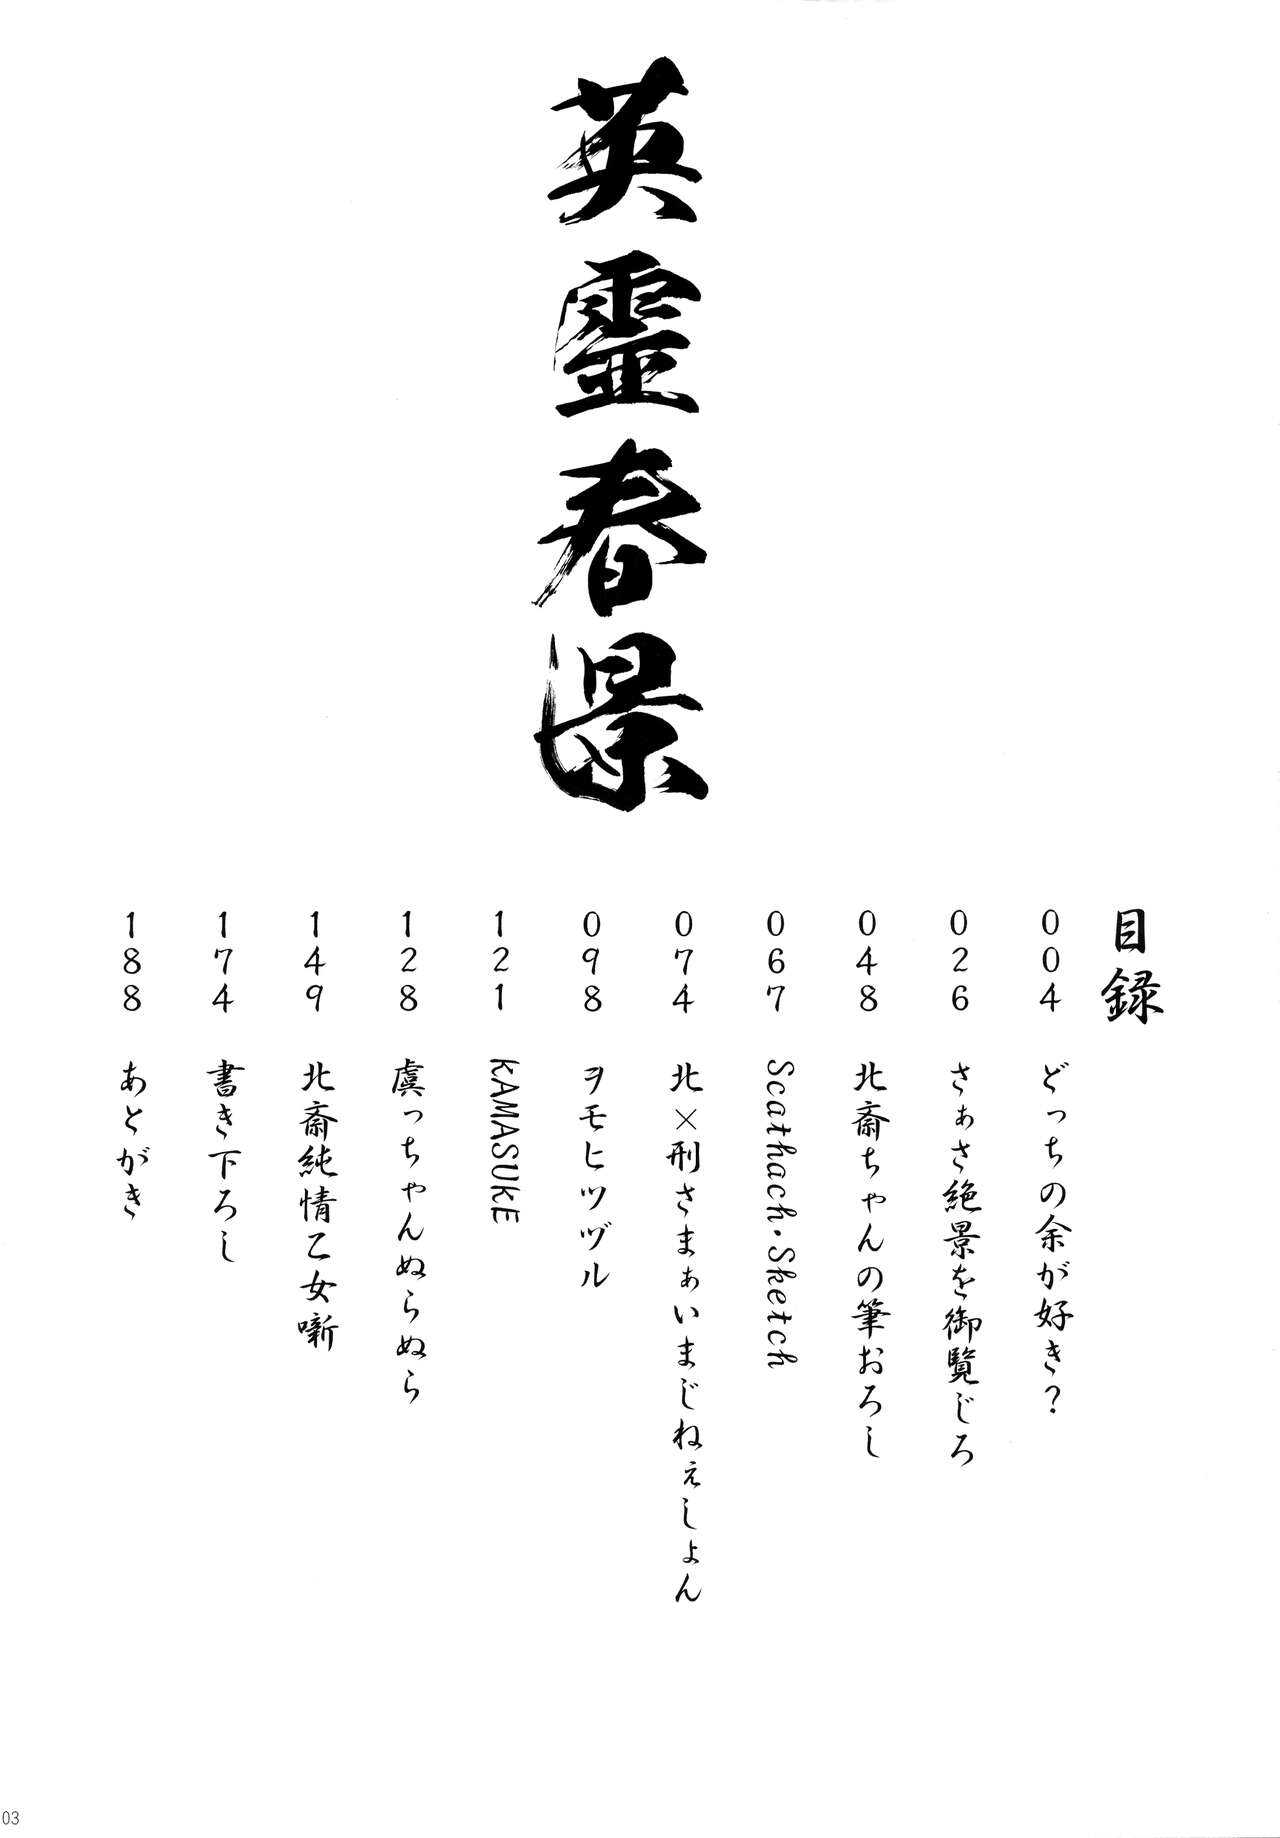 英霊春景
目録
004 どっちの余が好き？
026 さぁさ絶景を御覧じろ
048 北斎ちゃんの筆おろし
067 Scathach・Sketch
074 北×刑さまぁいまじねぇしょん
098 ヲモヒツヅル
121 KAMASUKE
128 虞っちゃんぬらぬら
149 北斎純情乙女噺
174 書き下ろし
188 あとがき
03